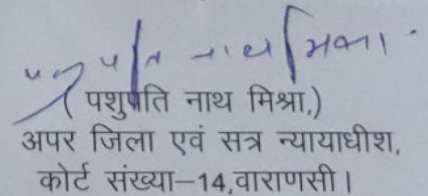 पशुपति नाथ मिश्रा
(पशुपति नाथ मिश्रा,)
अपर जिला एवं सत्र न्यायाधीश,
कोर्ट संख्या–14,वाराणसी।